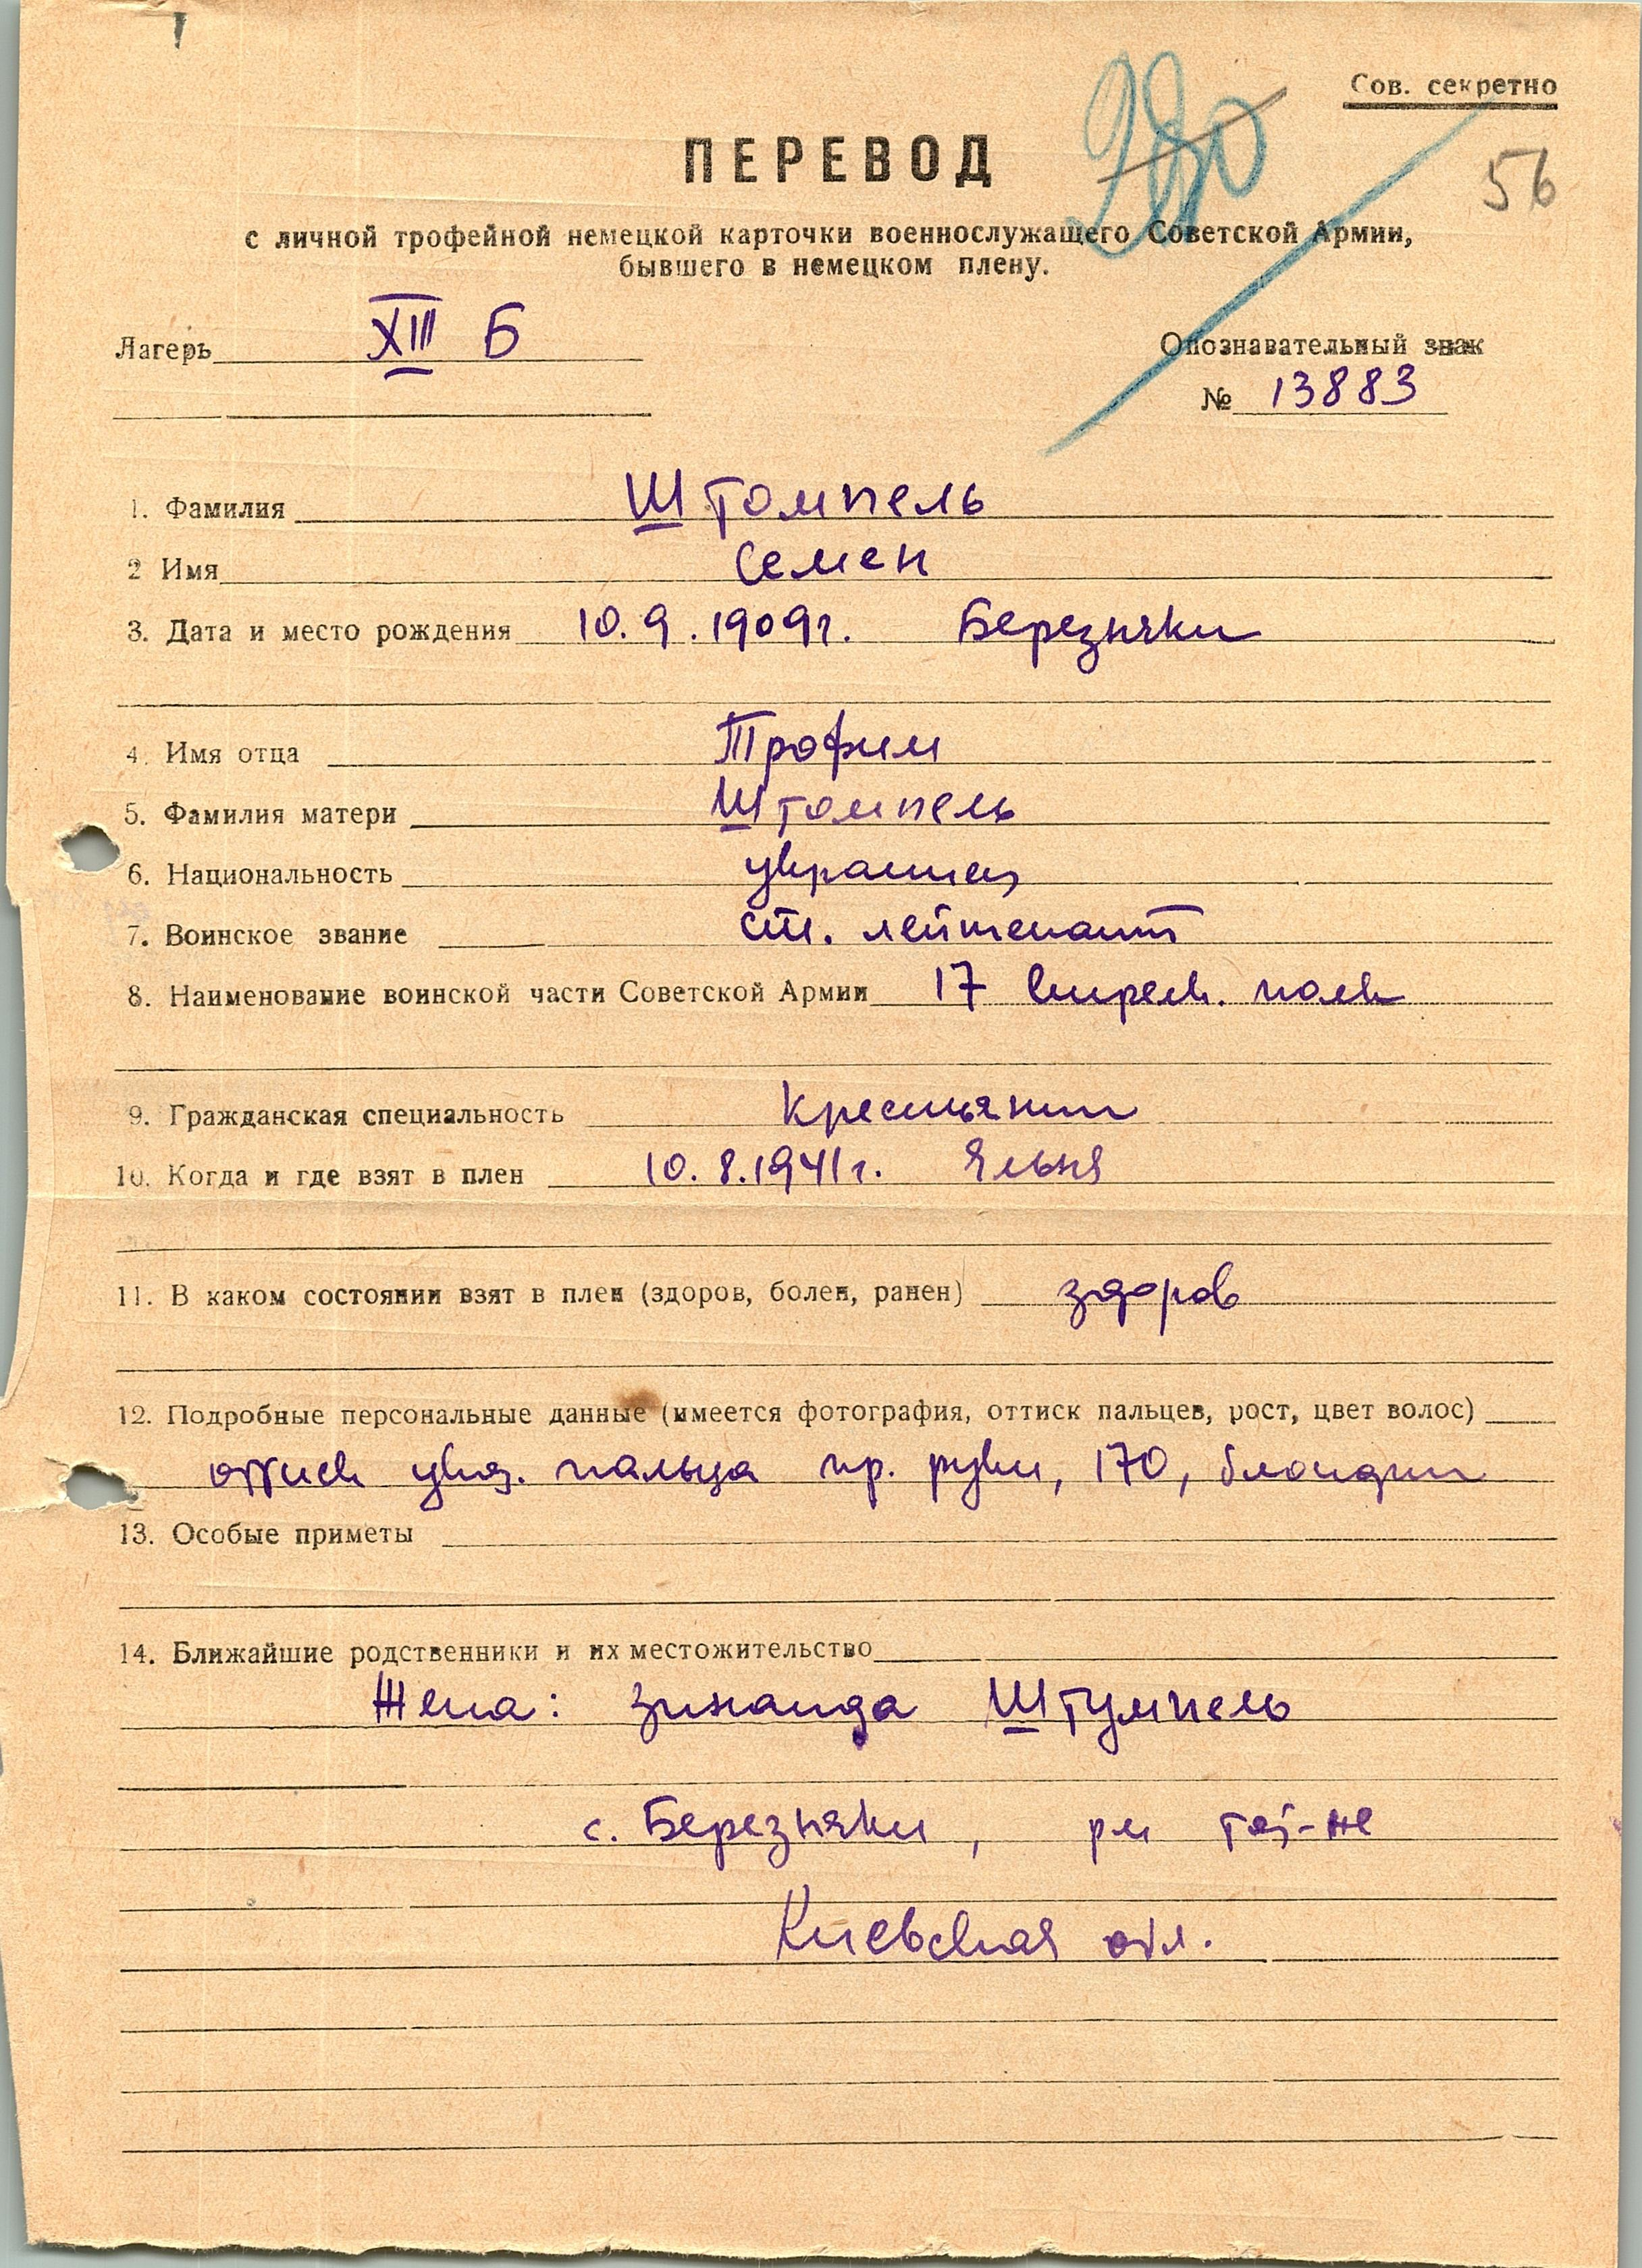 Сов. секретно
280
56
ПЕРЕВОД
с личной трофейной немецкой карточки военнослужащего Советской Армии,
бывшего в немецком плену.
Лагерь XIII Б
Опознавательный знак
№ 13883
1. Фамилия Штомпель
2 Имя Семен
3. Дата и место рождения 10.9.1909г. Березняки
4. Имя отца Трофим
5. Фамилия матери Штомпель
6. Национальность украинец
7. Воинское звание ст. лейтенант
8. Наименование воинской части Советской Армии 17 стрелк. полк
9. Гражданская специальность крестьянин
10. Когда и где взят в плен 10.8.1941г. Яльня
11. В каком состоянии взят в плен (здоров, болен, ранен) здоров
12. Подробные персональные данные (имеется фотография, оттиск пальцев, рост, цвет волос)
оттиск указ. пальца пр. руки, 170, блондин
13. Особые приметы
14. Ближайшие родственники и их местожительство
Жена: Зинаида Штумпель
с. Березняки,
Киевская обл.